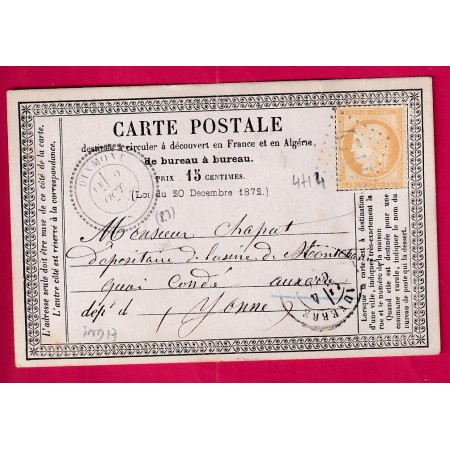 CARTE POSTALE
destinée à circuler à découvert en France et en Algérie
de bureau à bureau.
PRIX 15 CENTIMES.
(Loi du 20 Décembre 1872.)
DIXMONT
OCT
4414
(83)
Monsieur Chapat
dépositaire de l'usine de
quai Condé auxerre
dépt d ( Yonne )
AUXERRE
ind 17
L'adresse seule doit être mise de ce côté de la carte.
L'autre côté est réservé à la correspondance.
Lorsque la carte est à destination
d'une ville, indiquer très-exactement la
rue et le numéro de la maison
Quand elle est destinée à une
commune rurale, indiquer le nom du
bureau de poste qui la dessert.